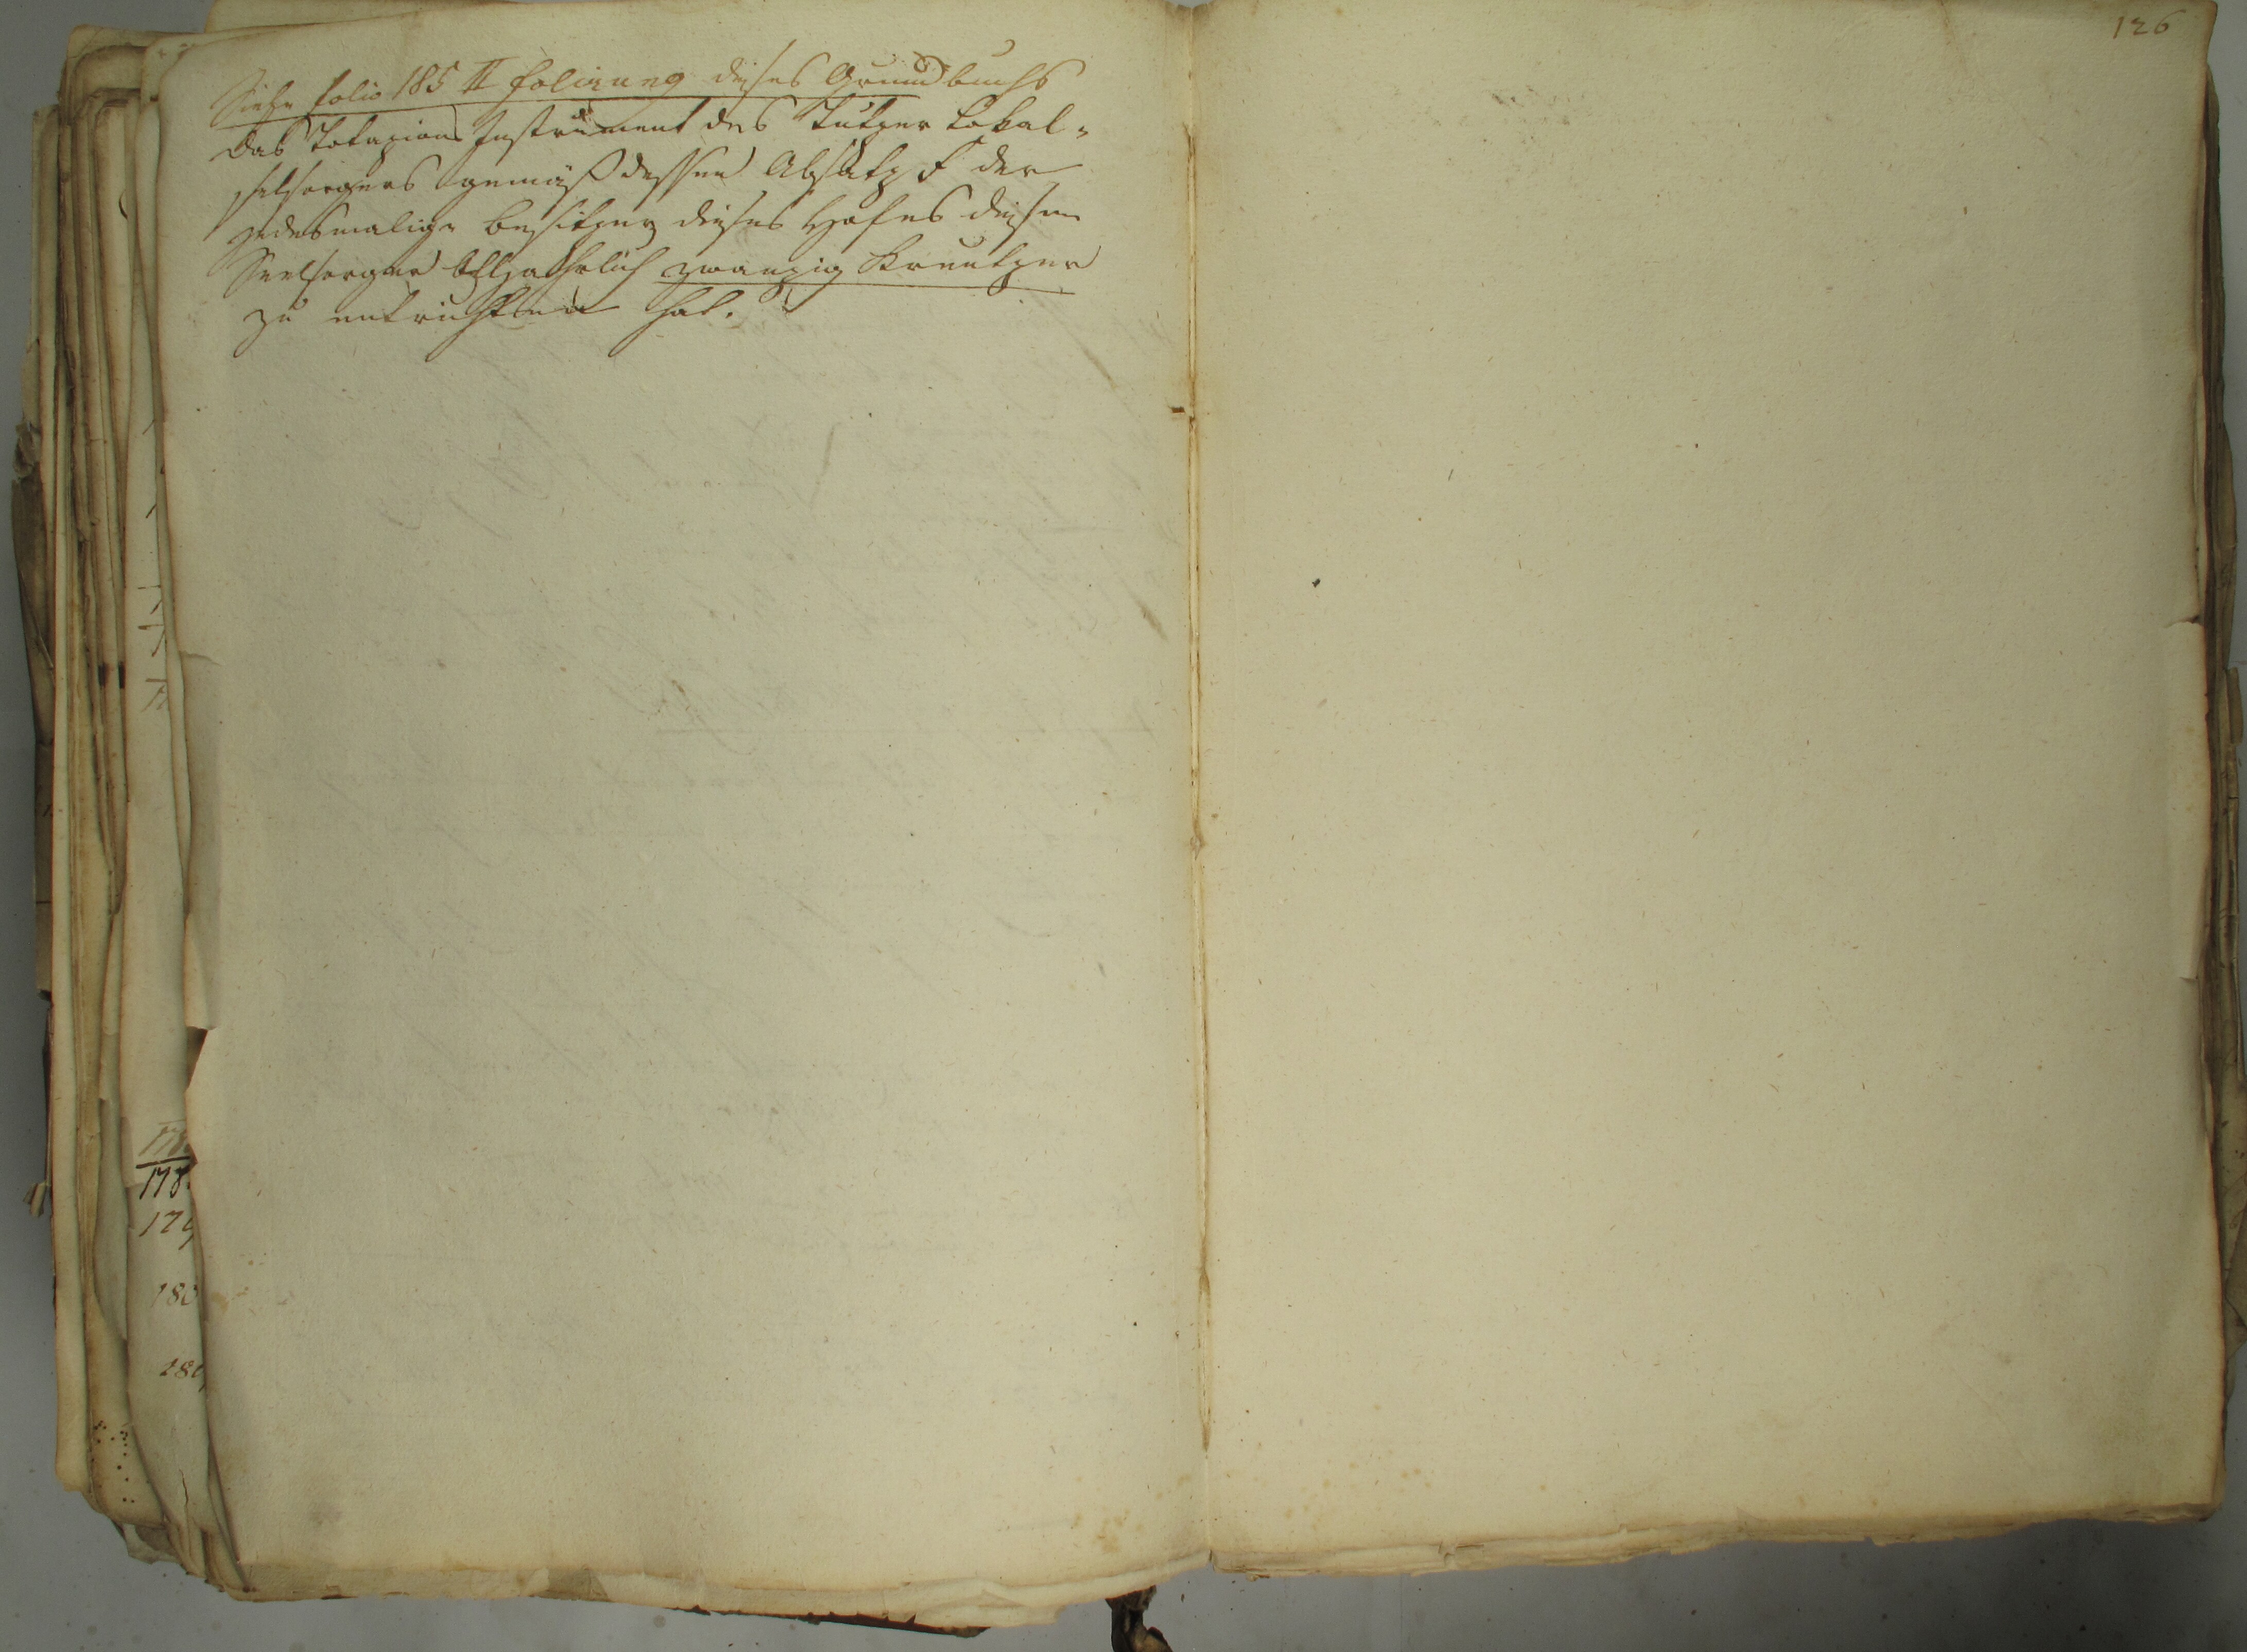 126
Siehe folio 185 II folirung dieses Grundbuchs
das Dotazions Instrument des Lokal-
selsorgers gemäß dessen Absatz F der
jedesmalige besitzer dieses Hofes diesem
Seelsorger Alljährlich zwanzig Kreutzer
zu entrichten hat.
178
179
180
180